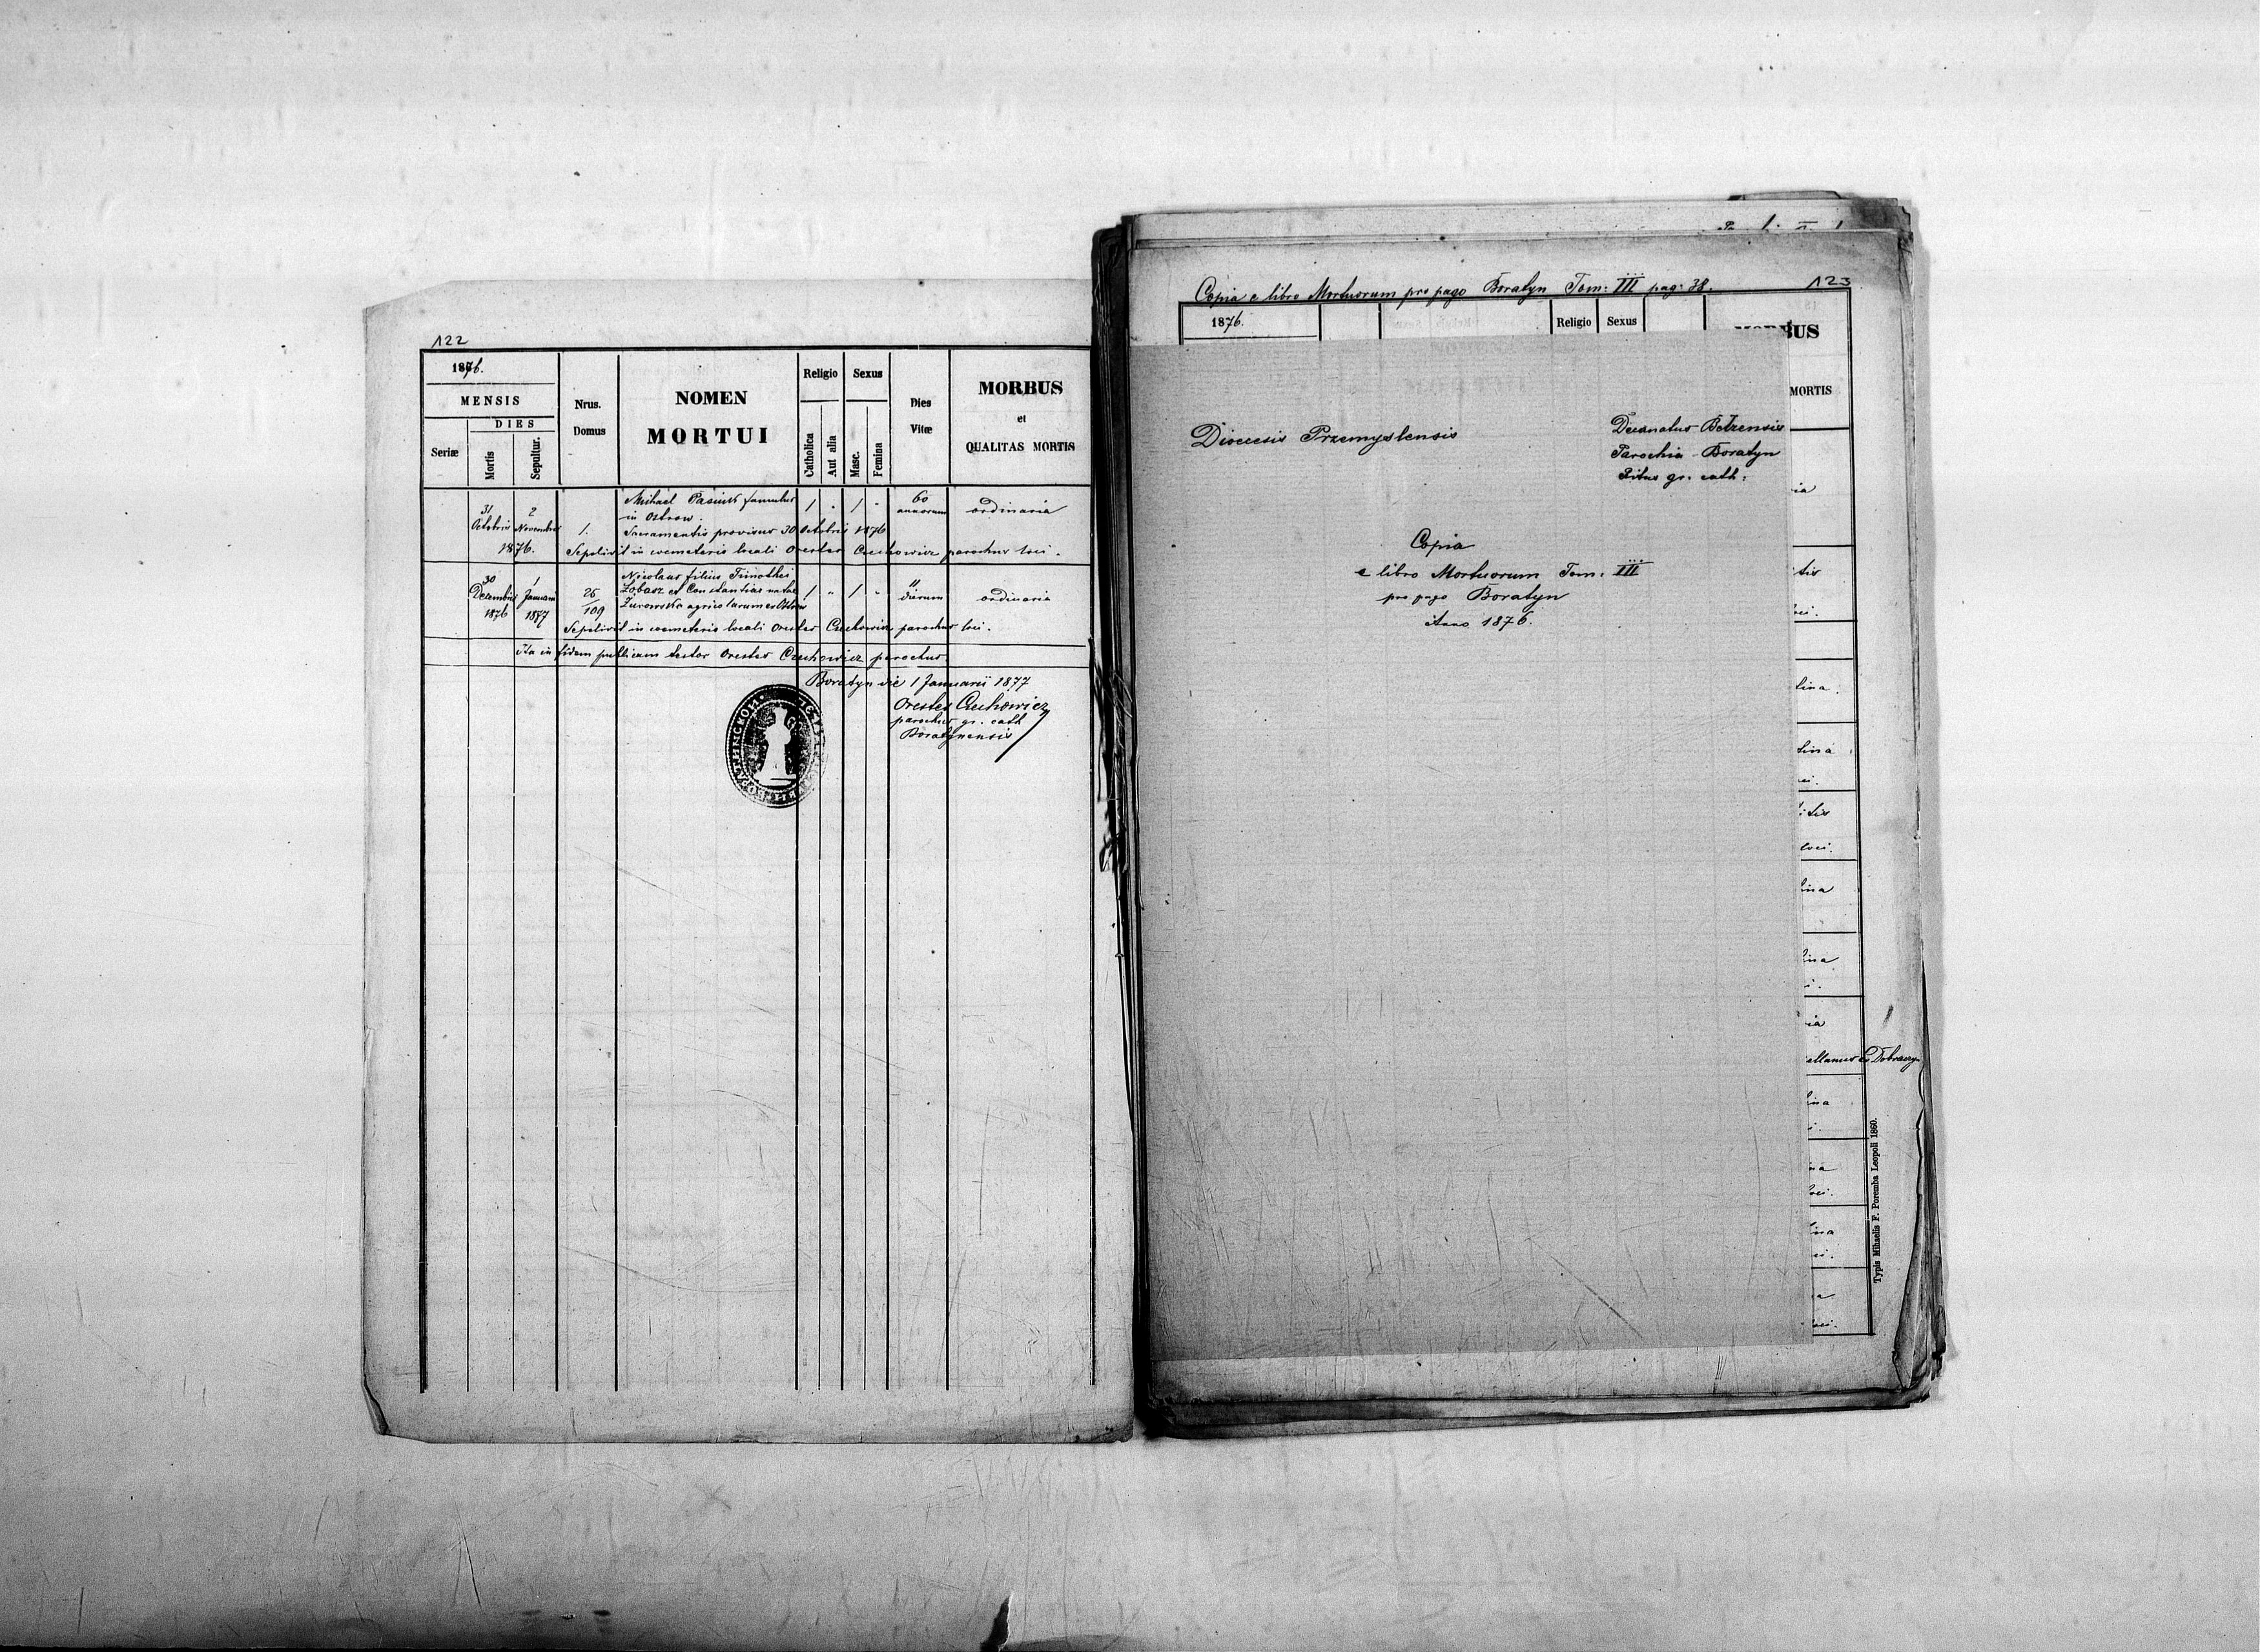 122
1876.
MENSIS
DIES
Seriæ
Mortis
Sepultur.
Nrus.
Domus
NOMEN
MORTUI
Religio
Catholica
Aut alia
Sexus
Masc.
Femina
Dies
Vitæ
MORBUS
et
QUALITAS MORTIS
31 Octobris 2 Novembris 1876. 1.
Michael famulus
in Ostrow.
Sacramentis provisus 30 Octobris 1876
Sepelivit in coemeterio locali Orestes Czechowicz parochus loci.
1 " 1 " 60 annorum ordinaria
30 Decembris 1876 1 Januarii 1877 26/109
Nicolaus filius Timothei
et Constantiae natae
agricolarum ex Ostrow
1 " 1 " 11 dierum ordinaria
Sepelivit in coemeterio locali Orestes Czechowicz parochus loci.
Ita in fidem publicam testor Orestes Czechowicz parochus
Boratyn die 1 Januarii 1877
Orestes Czechowicz
parochus gr. cath
Boratynensis
Copia e libro Mortuorum pro pago Boratyn Tom: III pag: 38.
123
1876.
Religio
Sexus
BUS
MORTIS
Dioecesis Przemyslensis
Decanatus Belzensis
Parochia Boratyn
Ritus gr. cath:
Copia
e libro Mortuorum Tom: III
pro pago Boratyn
Anno 1876.
Typis Mihaelis F. Poremba Leopoli 1860.